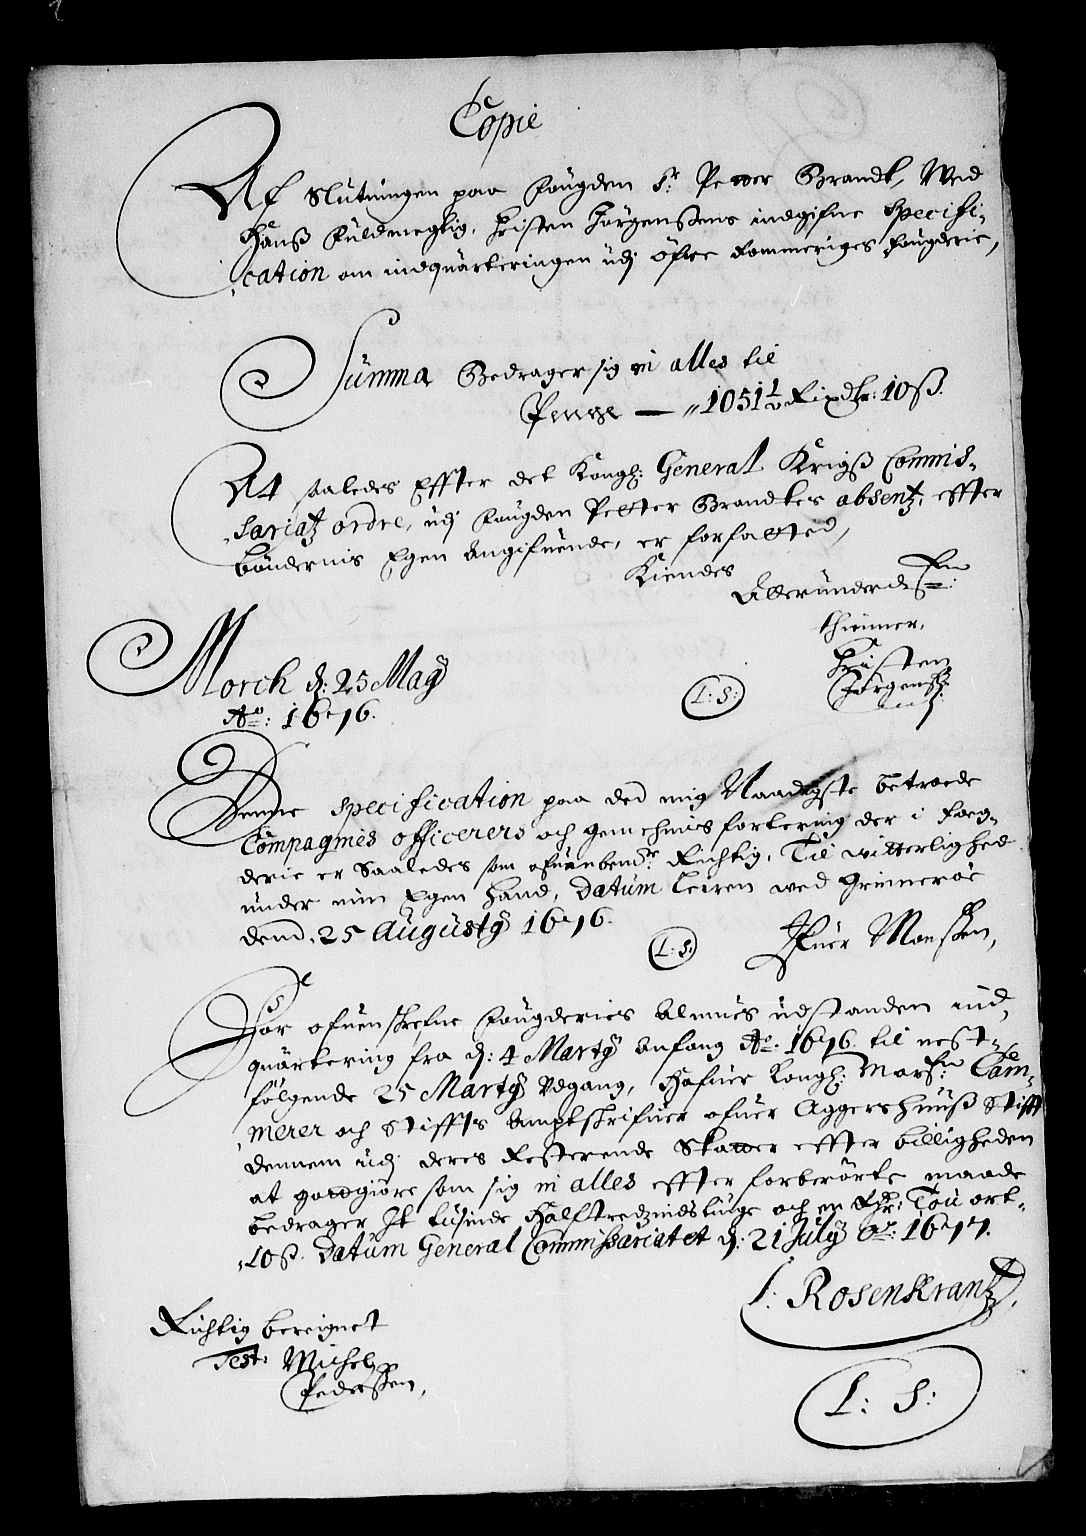 Copie
Af Slutningen paa fougden Sr: Petter Brandt, Wed
Hanß fuldmegtig, Christen Jørgenßens indgifne specifi-
cation om indquarteringen udj öfre Rommeriges fougderie,
Summa Bedrager sig in alles til
Penge — 1051½ Rixdlr: 10 ß.
At saaledes Effter det Kongl: General Krigß Commis-
sariatz ordre, udj fougden Petter Brandtes absentz, effter
böndernis Egen Angifuende, er forfatted,
Kiendes
Allerunderdst: En
thienner,
Christen
Jörgenß:
Morch d: 25 Maij
Ao: 1676.
L: S:
Denne specification paa ded mig Naadigste betroede
Compagnies officerers och gemehnis forlering der i foug-
derie er Saaledes som ofuenbemte: Richtig, Til witterlighed
under min Egen Hand, Datum Leiren wed Grinneröe
dend. 25 Augusti 1676.
L: S:
Ifuer Monßen,
For ofuenskrefne fougderies Almues udstanden ind-
quartering fra d: 4 Martij anfang Ao. 1676. til nest-
fölgende 25 Martij udgang, Hafuer Kongl: Maÿtz: Cam-
merer och Stiffts Amptskrifuer ofuer Aggershuuß Stifft
dennem udj deres Resterende Skatter effter billigheden
at godtgiöre som sig in alles effter forberörte maade
bedrager Et tusinde Halftredzindstiuge och en Rdr: Tou ort-
10 ß. Datum General Commissariatet d: 21 Julij Ao: 1677.
J: RosenKrantz.
Richtig beregnet
Test: Michel
Pederßen,
L: S: